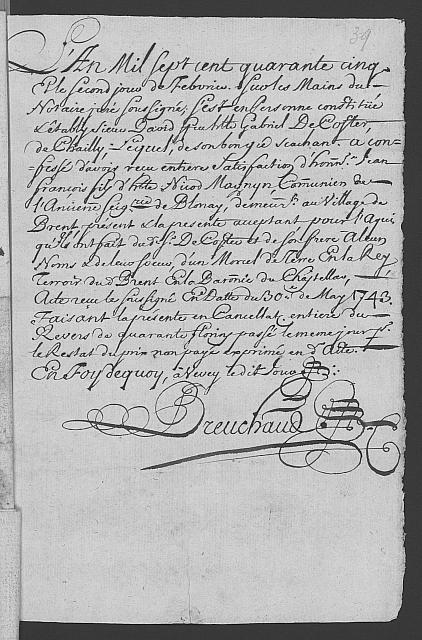 39
L'An Mil Sept cent quarante cinq
Et le second jour de Febvrier. Sur les Mains du
Notaire juré soussigné; s'est en Personne constitué
& étably Sieur David fils Gabriel De Coster,
de Chailly, Lequel, de son bon gré scachant. a con-
fessé d'avoir receu entiere Satisfaction d'honn. Jean
François fils d'hble Nicod Magnyn, Comunier de
l'Ancienne Seig.rie de Blonay, demeur.t au Village de
Brent, present & la presente aceptant pour l'Aqui
qu'ils ont fait du d. Sr. De Coster et de son frere A leurs
Noms & de leur soeur d'un Morcel de Terre En la Rey,
Terroir du d Brent En la Baronie du Chastellar,
Acte receu le soussigné En Datte du 30.e de May 1743.
Faisant la presente en Cancellat. entiere du
Revers de quarante florins passé le meme jour p.r
le Restat du prix non payé exprimé en d. Acte.
En Foy de quoy, à Vevey le dit jour
Dreuchaud